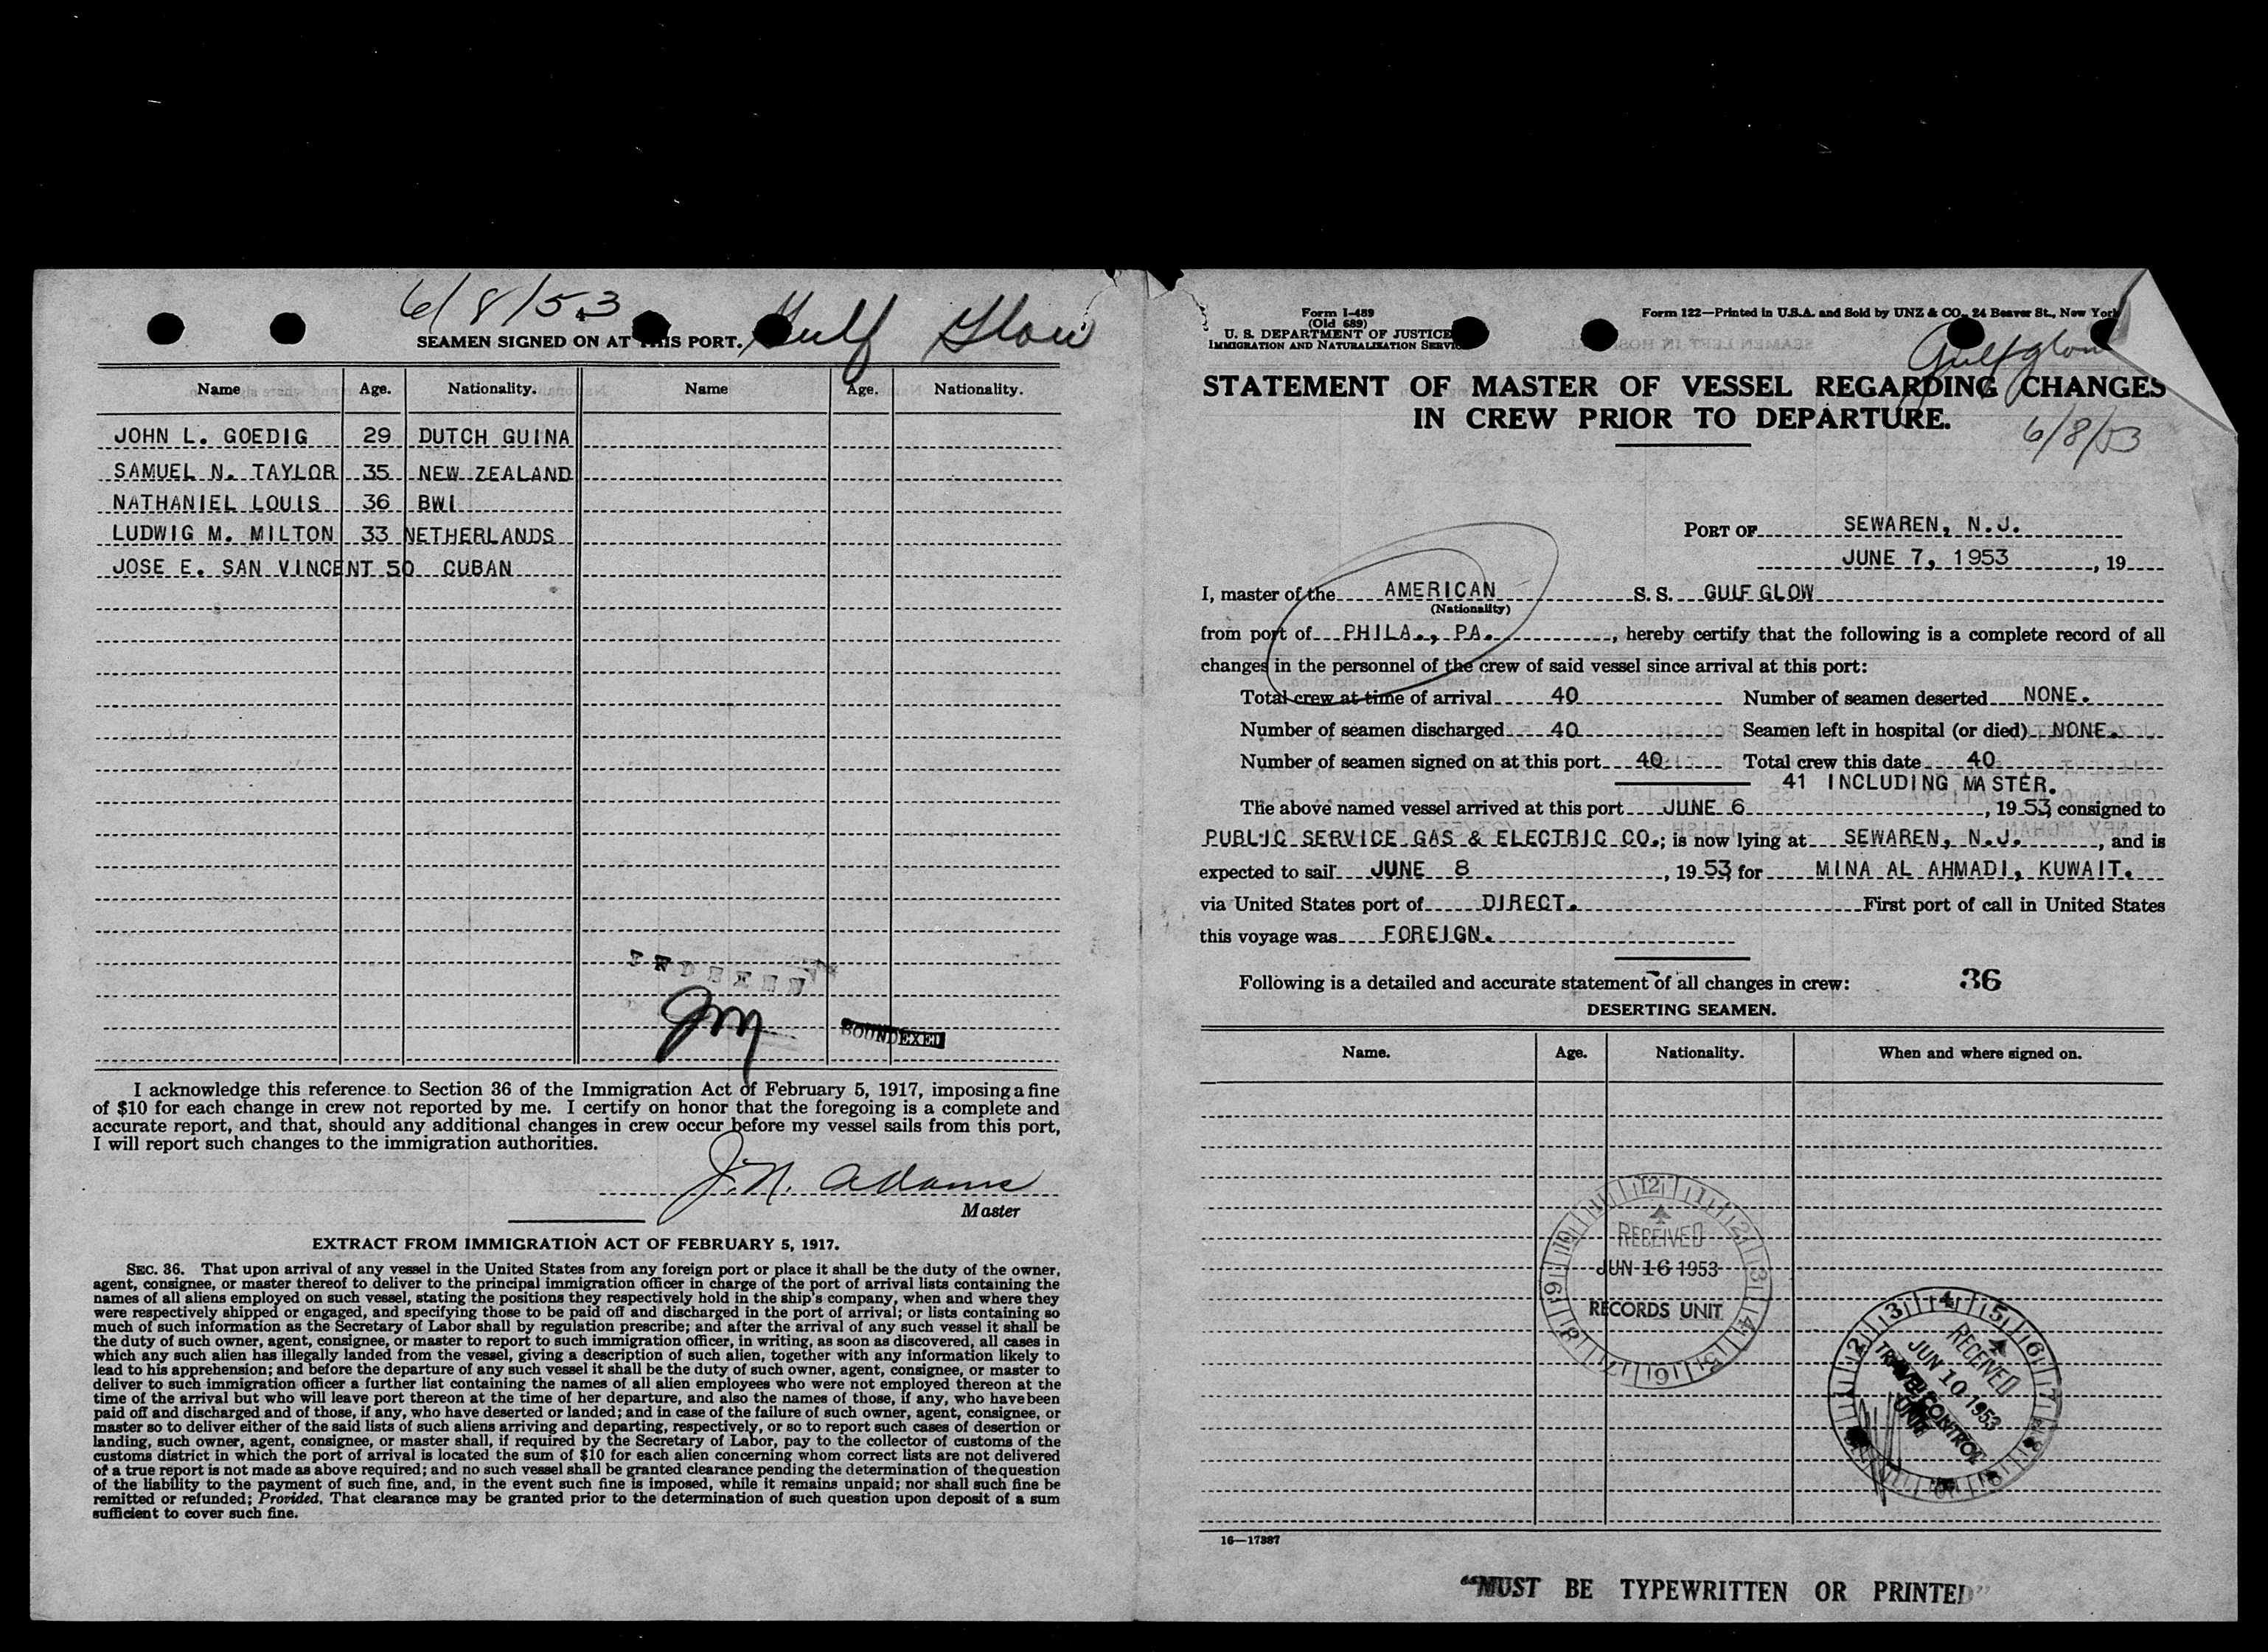 6/8/53 Gulf Glow
4
SEAMEN SIGNED ON AT THIS PORT.
Name Age. Nationality. Name Age. Nationality.
JOHN L. GOEDIG 29 DUTCH GUINA
SAMUEL N. TAYLOR 35 NEW ZEALAND
NATHANIEL LOUIS 36 BWI
LUDWIG M. MILTON 33 NETHERLANDS
JOSE E. SAN VINCENT 50 CUBAN
INDEXED
SOUNDEXED
I acknowledge this reference to Section 36 of the Immigration Act of February 5, 1917, imposing a fine
of $10 for each change in crew not reported by me. I certify on honor that the foregoing is a complete and
accurate report, and that, should any additional changes in crew occur before my vessel sails from this port,
I will report such changes to the immigration authorities.
J. N. Adams
Master
EXTRACT FROM IMMIGRATION ACT OF FEBRUARY 5, 1917.
SEC. 36. That upon arrival of any vessel in the United States from any foreign port or place it shall be the duty of the owner,
agent, consignee, or master thereof to deliver to the principal immigration officer in charge of the port of arrival lists containing the
names of all aliens employed on such vessel, stating the positions they respectively hold in the ship's company, when and where they
were respectively shipped or engaged, and specifying those to be paid off and discharged in the port of arrival; or lists containing so
much of such information as the Secretary of Labor shall by regulation prescribe; and after the arrival of any such vessel it shall be
the duty of such owner, agent, consignee, or master to report to such immigration officer, in writing, as soon as discovered, all cases in
which any such alien has illegally landed from the vessel, giving a description of such alien, together with any information likely to
lead to his apprehension; and before the departure of any such vessel it shall be the duty of such owner, agent, consignee, or master to
deliver to such immigration officer a further list containing the names of all alien employees who were not employed thereon at the
time of the arrival but who will leave port thereon at the time of her departure, and also the names of those, if any, who have been
paid off and discharged and of those, if any, who have deserted or landed; and in case of the failure of such owner, agent, consignee, or
master so to deliver either of the said lists of such aliens arriving and departing, respectively, or so to report such cases of desertion or
landing, such owner, agent, consignee, or master shall, if required by the Secretary of Labor, pay to the collector of customs of the
customs district in which the port of arrival is located the sum of $10 for each alien concerning whom correct lists are not delivered
of a true report is not made as above required; and no such vessel shall be granted clearance pending the determination of the question
of the liability to the payment of such fine, and, in the event such fine is imposed, while it remains unpaid; nor shall such fine be
remitted or refunded; Provided, That clearance may be granted prior to the determination of such question upon deposit of a sum
sufficient to cover such fine.
Form I-489
(Old 689)
U. S. DEPARTMENT OF JUSTICE
IMMIGRATION AND NATURALIZATION SERVICE
Form 122—Printed in U.S.A. and Sold by UNZ & CO., 24 Beaver St., New York
Gulfglow
STATEMENT OF MASTER OF VESSEL REGARDING CHANGES
IN CREW PRIOR TO DEPARTURE.
6/8/53
PORT OF SEWAREN, N.J.
JUNE 7, 1953, 19
I, master of the AMERICAN S. S. GULF GLOW
(Nationality)
from port of PHILA., PA., hereby certify that the following is a complete record of all
changes in the personnel of the crew of said vessel since arrival at this port:
Total crew at time of arrival 40 Number of seamen deserted NONE.
Number of seamen discharged 40 Seamen left in hospital (or died) NONE.
Number of seamen signed on at this port 40 Total crew this date 40
41 INCLUDING MASTER.
The above named vessel arrived at this port JUNE 6, 1953 consigned to
PUBLIC SERVICE GAS & ELECTRIC CO.; is now lying at SEWAREN, N.J., and is
expected to sail JUNE 8, 1953, for MINA AL AHMADI, KUWAIT.
via United States port of DIRECT. First port of call in United States
this voyage was FOREIGN.
Following is a detailed and accurate statement of all changes in crew: 36
DESERTING SEAMEN.
Name. Age. Nationality. When and where signed on.
RECEIVED
JUN 16 1953
RECORDS UNIT
RECEIVED
JUN 10 1953
TRAVEL CONTROL
UNIT
16—17387
"MUST BE TYPEWRITTEN OR PRINTED"